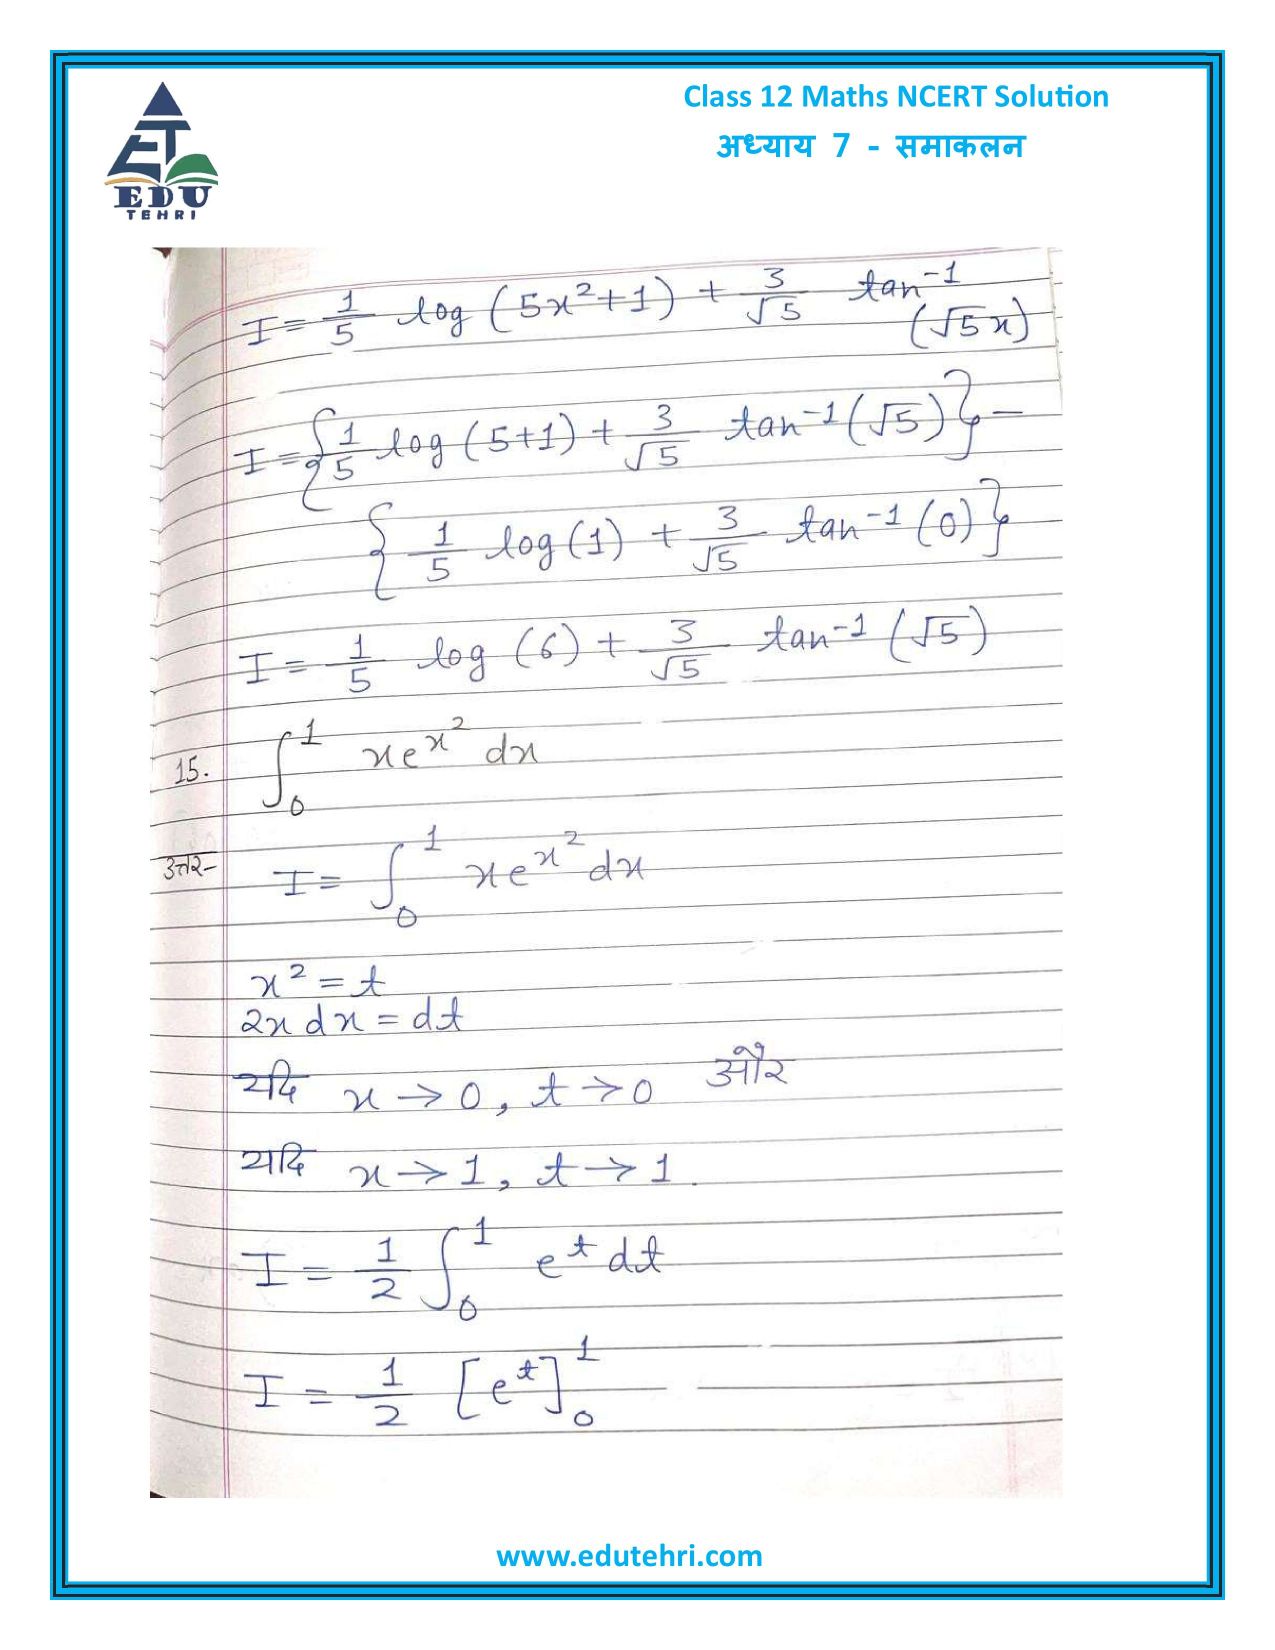 Class 12 Maths NCERT Solution
अध्याय 7 - समाकलन
EDU
TEHRI
I = 1/5 log (5x²+1) + 3/√5 tan⁻¹ (√5x)
I = {1/5 log (5+1) + 3/√5 tan⁻¹(√5)} -
{1/5 log(1) + 3/√5 tan⁻¹(0)}
I = 1/5 log (6) + 3/√5 tan⁻¹(√5)
15. ∫₀¹ xe^x² dx
उत्तर- I = ∫₀¹ xe^x² dx
x² = t
2x dx = dt
यदि x → 0, t → 0 और
यदि x → 1, t → 1.
I = 1/2 ∫₀¹ e^t dt
I = 1/2 [e^t]₀¹
www.edutehri.com